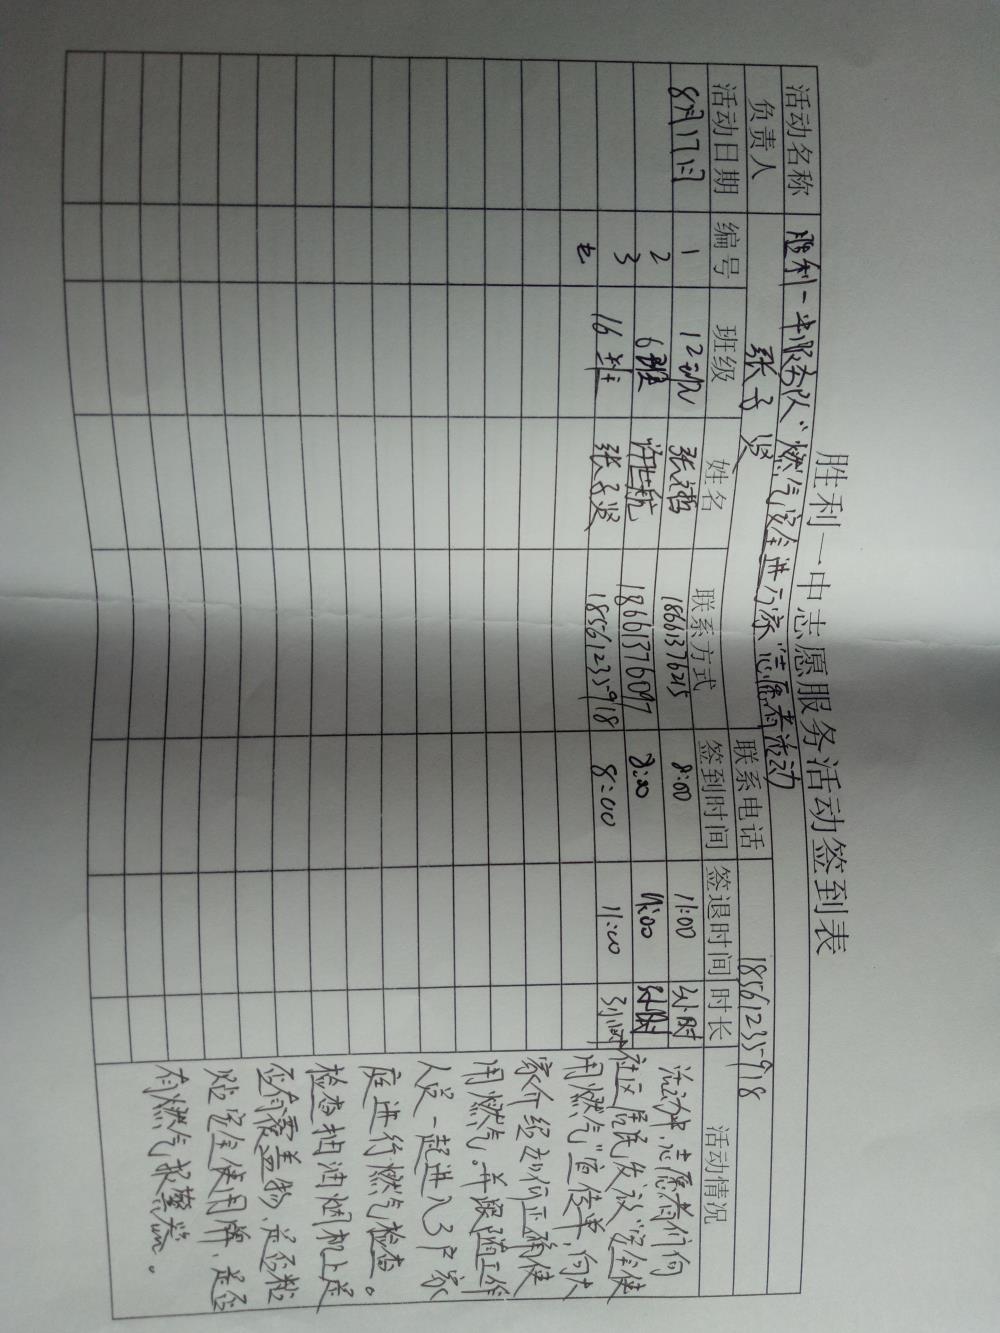 胜利一中志愿服务活动签到表
活动名称 胜利一中服务队“燃气安全进万家”志愿者活动
负责人 张子贤 联系电话 18561235918
活动日期 编号 班级 姓名 联系方式 签到时间 签退时间 时长 活动情况
8月17日 1 12班 18661376215 8:00 11:00 3小时
2 6班 许世航 18661376097 8:00 11:00 3小时
3 16班 张子贤 18561235918 8:00 11:00 3小时
活动中，志愿者们向
社区居民发放“安全使
用燃气”宣传单，向大
家介绍如何正确使
用燃气。并跟随工作
人员一起进入3户家
庭进行燃气检查。
检查抽油烟机上是
否有覆盖物，是否粘
贴安全使用牌，是否
有燃气报警器。